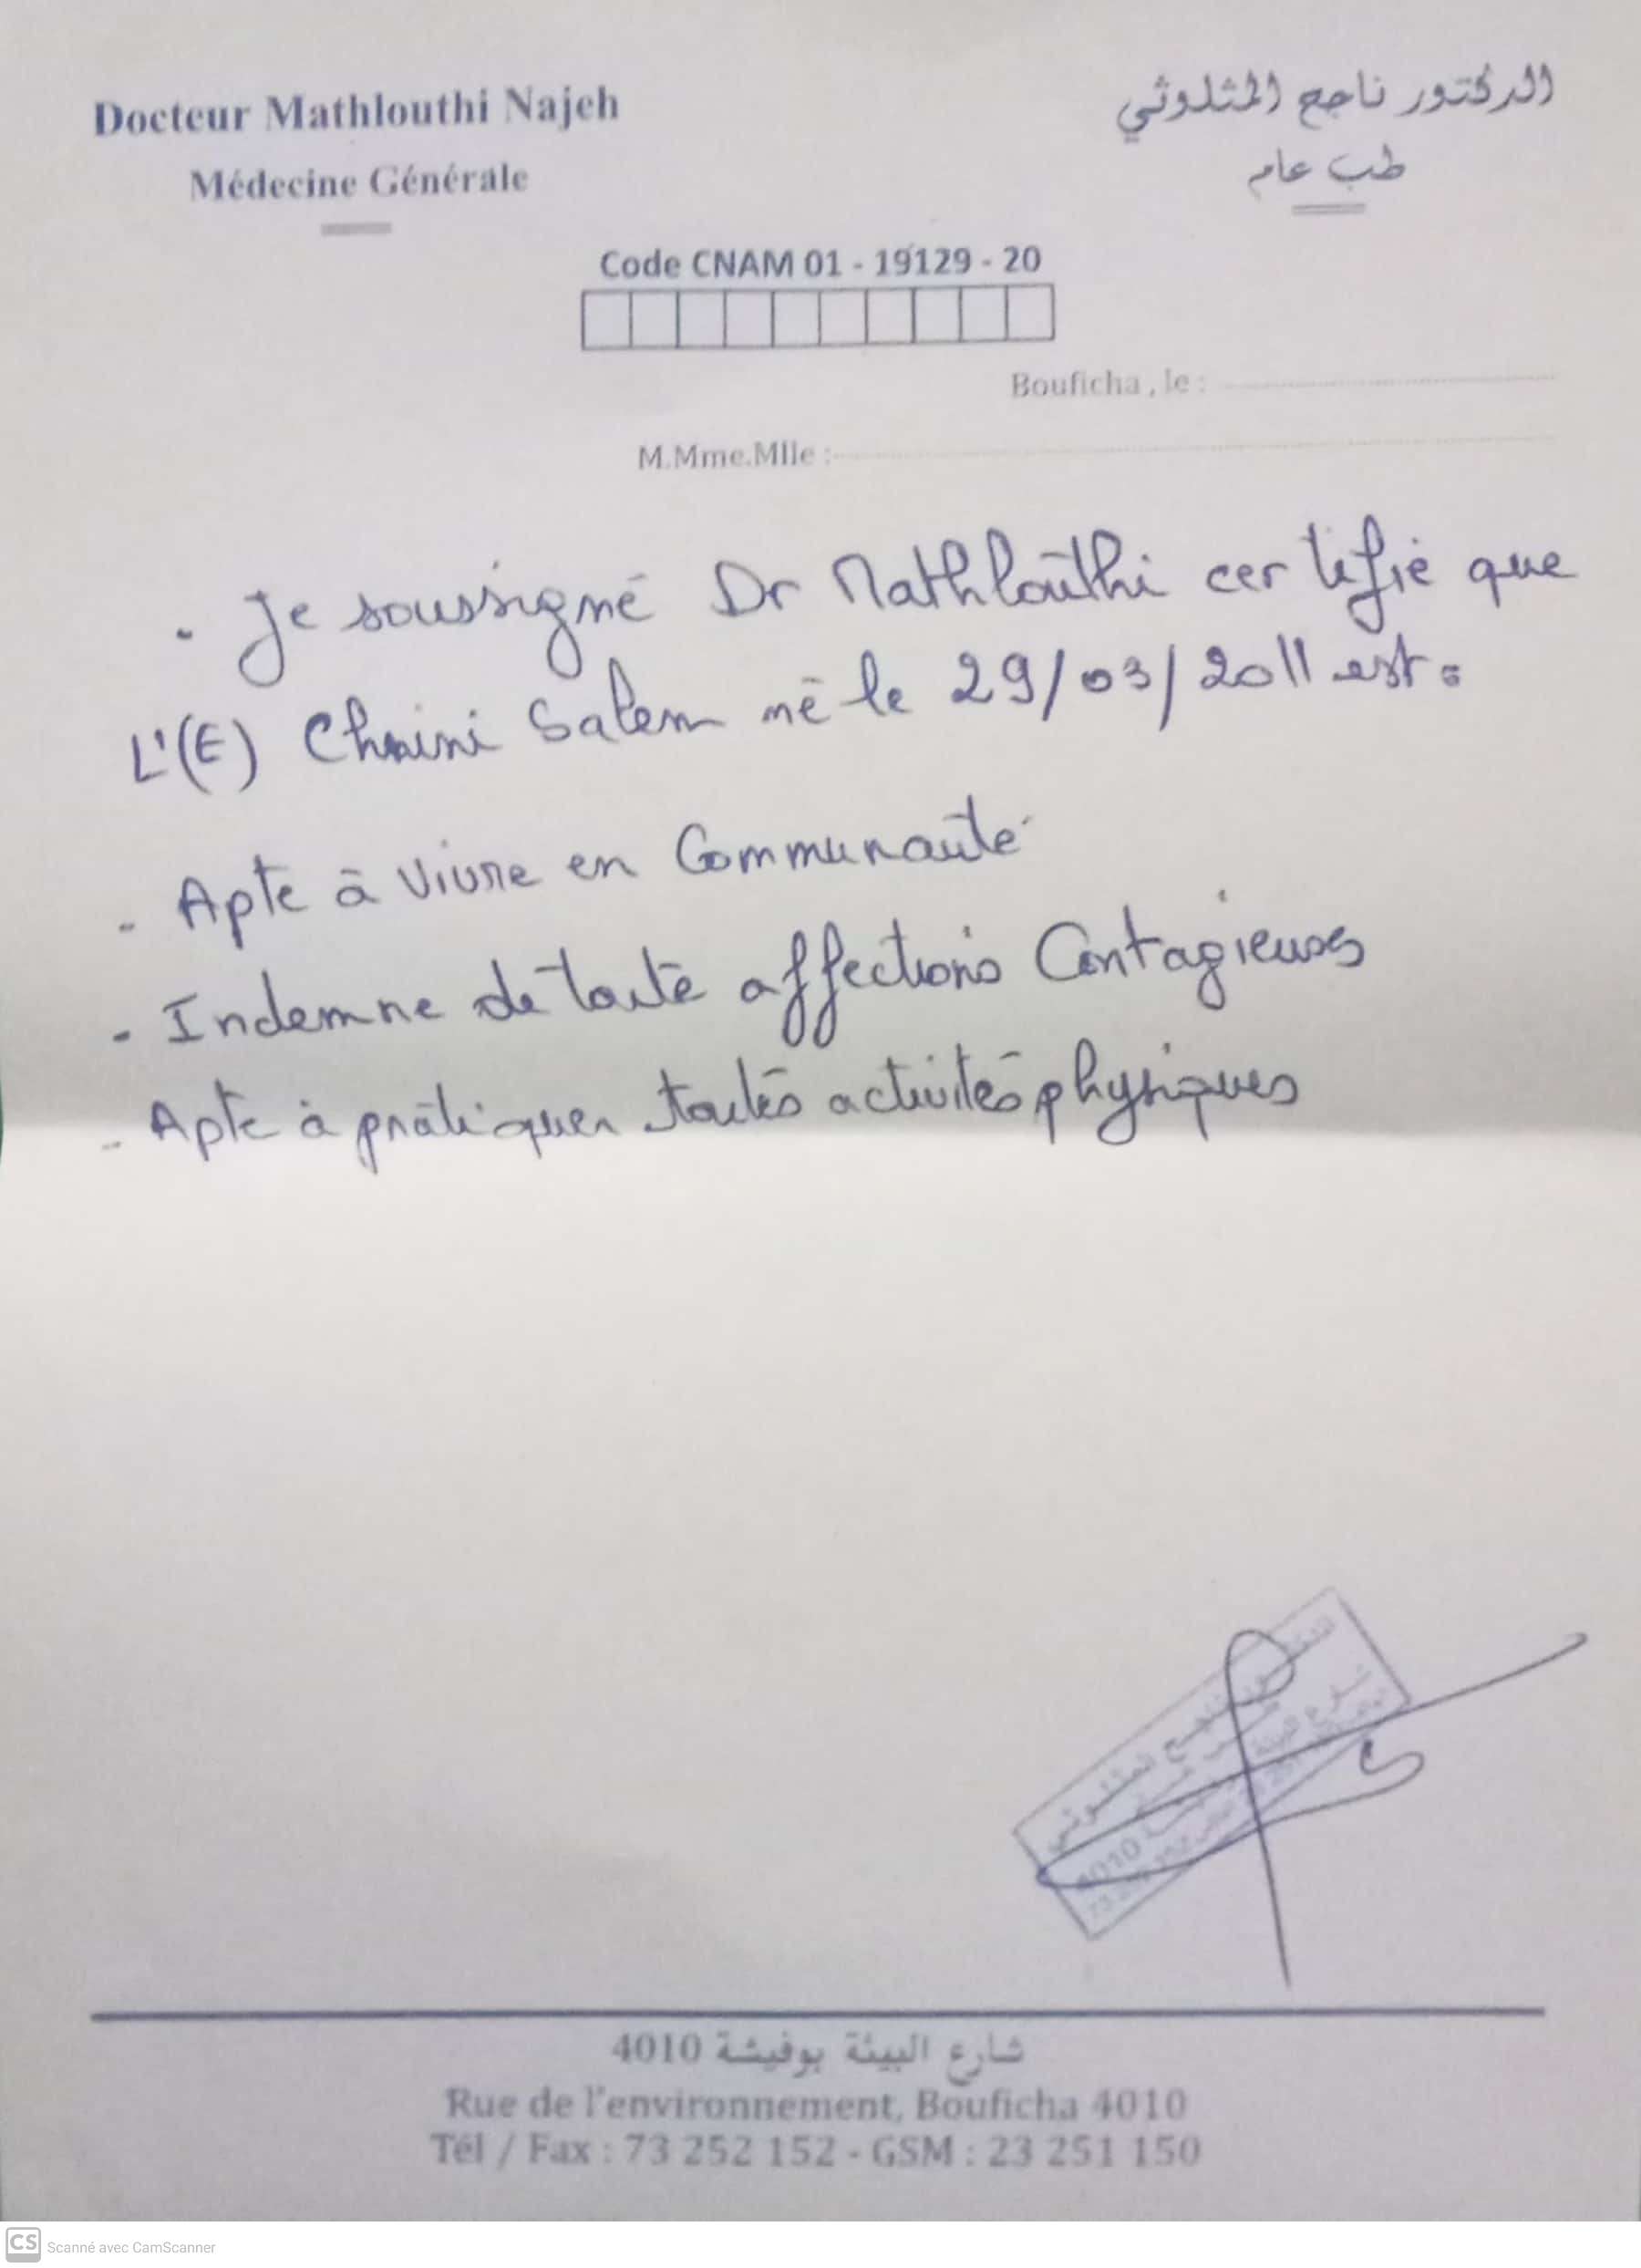 Docteur Mathlouthi Najeh
الدكتور ناجح المثلوثي
Médecine Générale
طب عام
Code CNAM 01 - 19129 - 20
Bouficha , le :
M.Mme.Mlle :
. Je soussigné Dr Mathlouthi certifie que
L'(E) Chnini Salem né le 29/03/2011 est :
- Apte à vivre en Communauté
- Indemne de toute affections Contagieuses
- Apte à pratiquer toutes activités physiques
ناجح المثلوثي
4010
شارع البيئة بوفيشة 4010
Rue de l'environnement, Bouficha 4010
Tél / Fax : 73 252 152 - GSM : 23 251 150
CS Scanné avec CamScanner